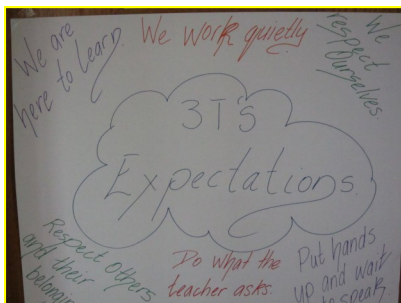 We are
here to Learn.
We Work quietly.
We
respect
Ourselves
3T's
Expectations
Respect Others
and their
Do What the
teacher asks.
Put hands
up and wait
to speak